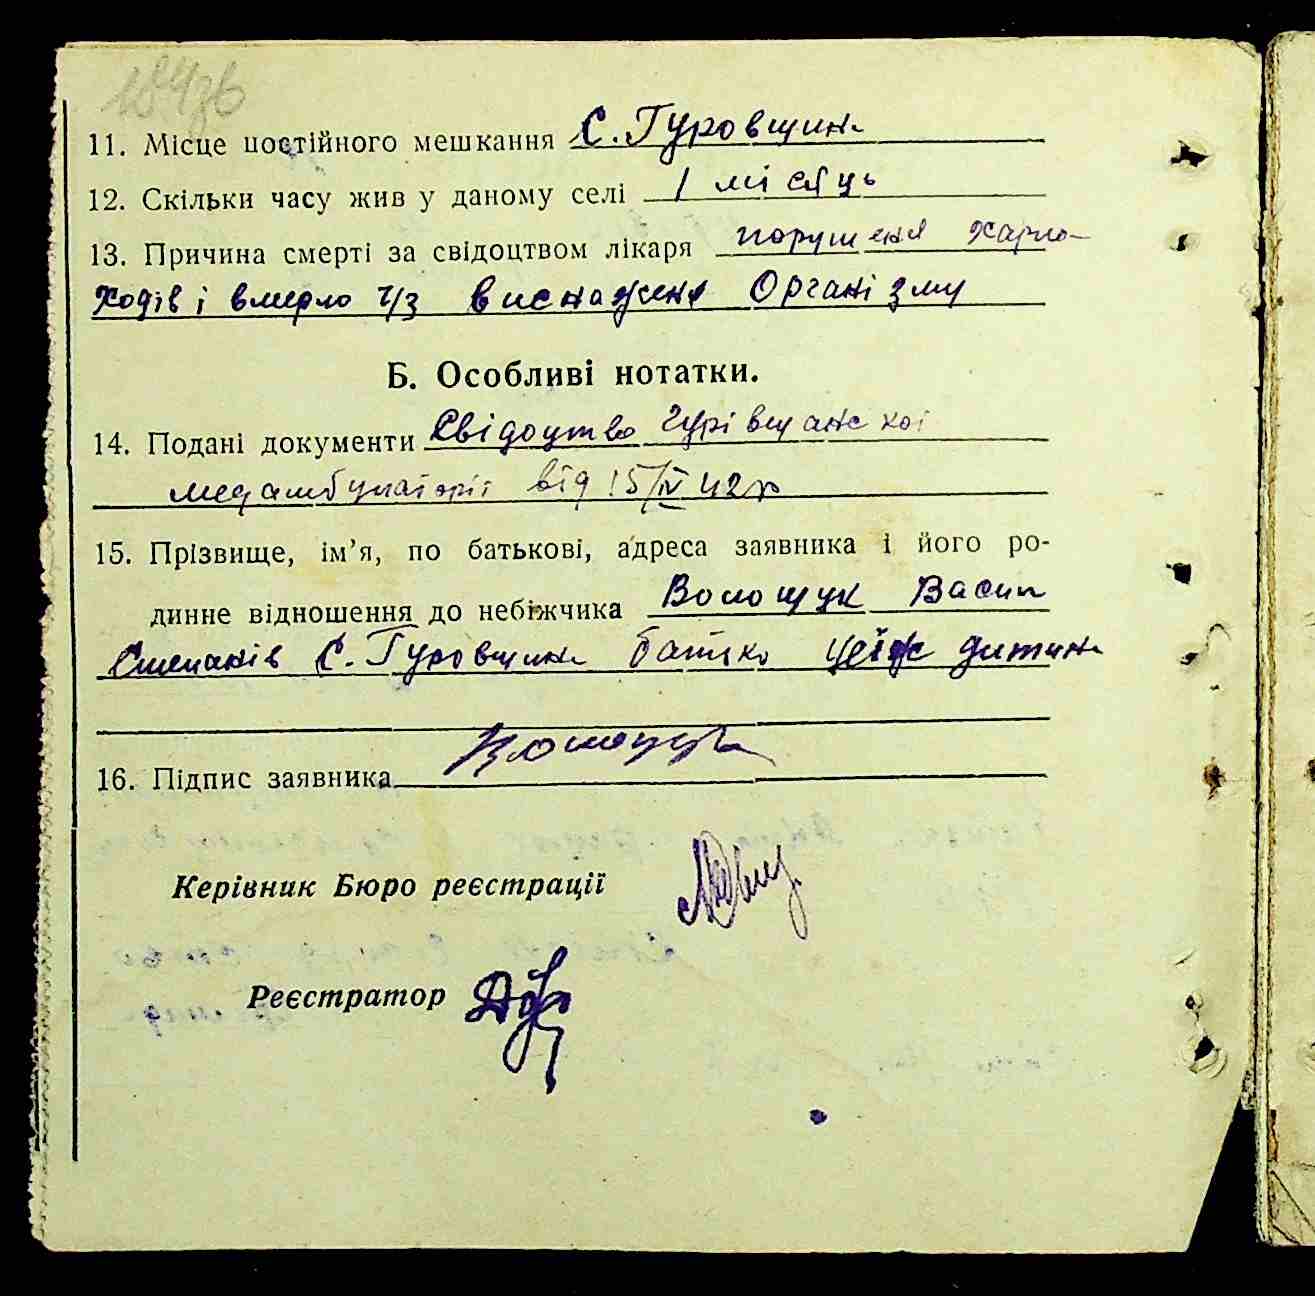 11. Місце постійного мешкання С. Гуровщина
12. Скільки часу жив у даному селі 1 місяць
13. Причина смерті за свідоцтвом лікаря порушеня харчо-
ходів і вмерло ч/з виснаженя Організму
Б. Особливі нотатки.
14. Подані документи Свідоцтво Гурівщанскоі
медамбулаторіі від 15/IV 42 р
15. Прізвище, ім’я, по батькові, адреса заявника і його ро-
динне відношення до небіжчика Волощук Васил
Степанів С. Гуровщина батько цеїж дитини
16. Підпис заявника Волощук
Керівник Бюро реєстрації
Реєстратор